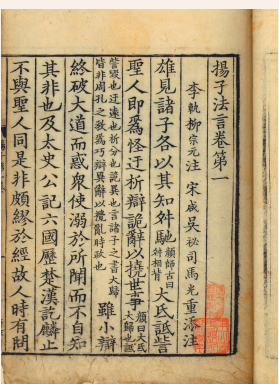 揚子法言卷第一
李軌柳宗元注 宋咸吳祕司馬光重添注
雄見諸子各以其知舛馳顏師古曰舛相背大氐詆訾
聖人即爲怪迂析辯詭辭以撓世事顏曰大氐大歸也詆
訾毀也迂遠也析分也詭異也言諸子之書大歸
皆非周孔之教爲巧辯異辭以攪亂時政也雖小辯
終破大道而惑衆使溺於所聞而不自知
其非也及太史公記六國歷楚漢訖麟止
不與聖人同是非頗繆於經故人時有問